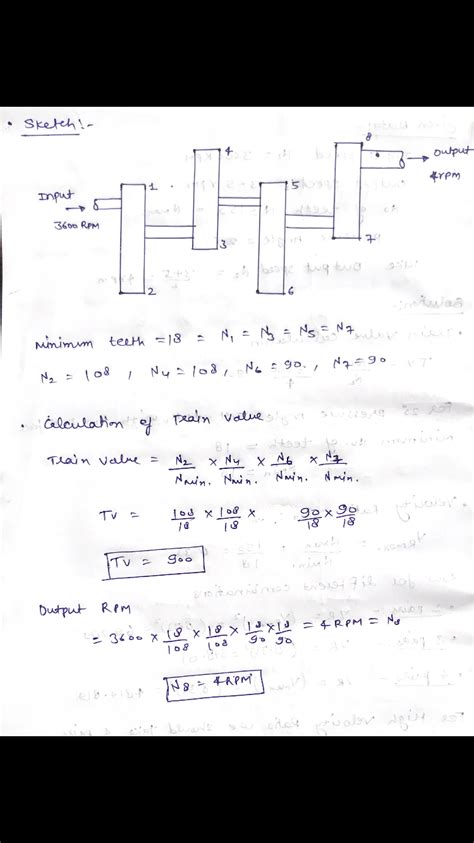 • Sketch:-
4
8
Output
4rpm
Input
3600 RPM
1
5
3
7
2
6
Minimum teeth = 18 = N1 = N3 = N5 = N7
N2 = 108 , N4 = 108, N6 = 90, , N7 = 90
• Calculation of Train Value
Train value = N2/Nmin. × N4/Nmin. × N6/Nmin. × N7/Nmin.
TV = 108/18 × 108/18 × 90/18 × 90/18
TV = 900
Output RPM
= 3600 × 18/108 × 18/108 × 18/90 × 18/90 = 4 RPM = N8
N8 = 4RPM